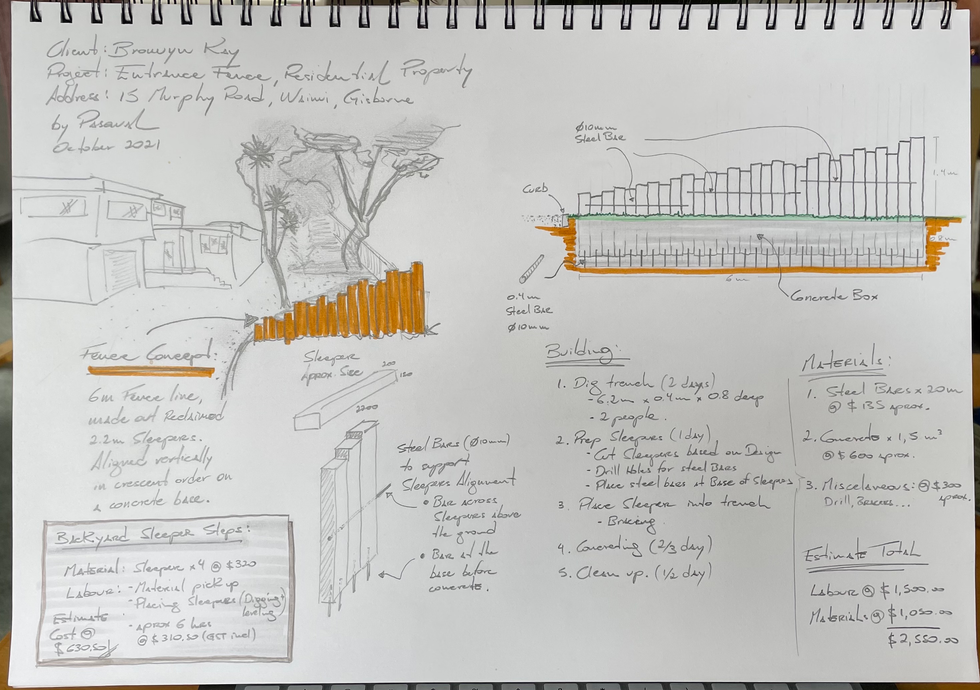 Client: Bronwyn Kay
Project: Entrance Fence, Residential Property
Address: 15 Murphy Road, Wainui, Gisborne
by Pascual
October 2021
Fence Concept:
6m Fence line,
made out Reclaimed
2.2m Sleepers.
Aligned vertically
in crescent order on
a concrete base.
Backyard Sleeper Steps:
Material: Sleeper x4 @ $320
Labour: - Material pick up
- Placing Sleepers (Digging,
leveling)
- Aprox 6 hrs
@ $310.50 (GST incl)
Estimate
Cost @
$630.50
Sleeper
Aprox. Size
200
150
2200
Steel Bars (Ø10mm)
to support
Sleepers Alignment
• Bar across
Sleepers above
the ground
• Bar at the
base before
concrete.
Ø10mm
Steel Bar
Curb
1.4m
0.8m
6m
0.4m
Steel Bar
Ø10mm
Concrete Box
Building:
1. Dig trench (2 days)
- 6.2m x 0.4m x 0.8 deep
- 2 people.
2. Prep Sleepers (1 day)
- Cut Sleepers based on Design
- Drill Holes for steel Bars
- Place steel bars at Base of Sleepers
3. Place Sleeper into trench
- Bracing
4. Concreting (2/3 day)
5. Clean up. (1/2 day)
Materials:
1. Steel Bars x 20m
@ $135 aprox.
2. Concrete x 1,5 m³
@ $600 aprox.
3. Miscelaveous: @ $300
aprox.
Drill, Braces...
Estimate Total
Labour @ $1,500.00
Materials @ $1,050.00
$2,550.00